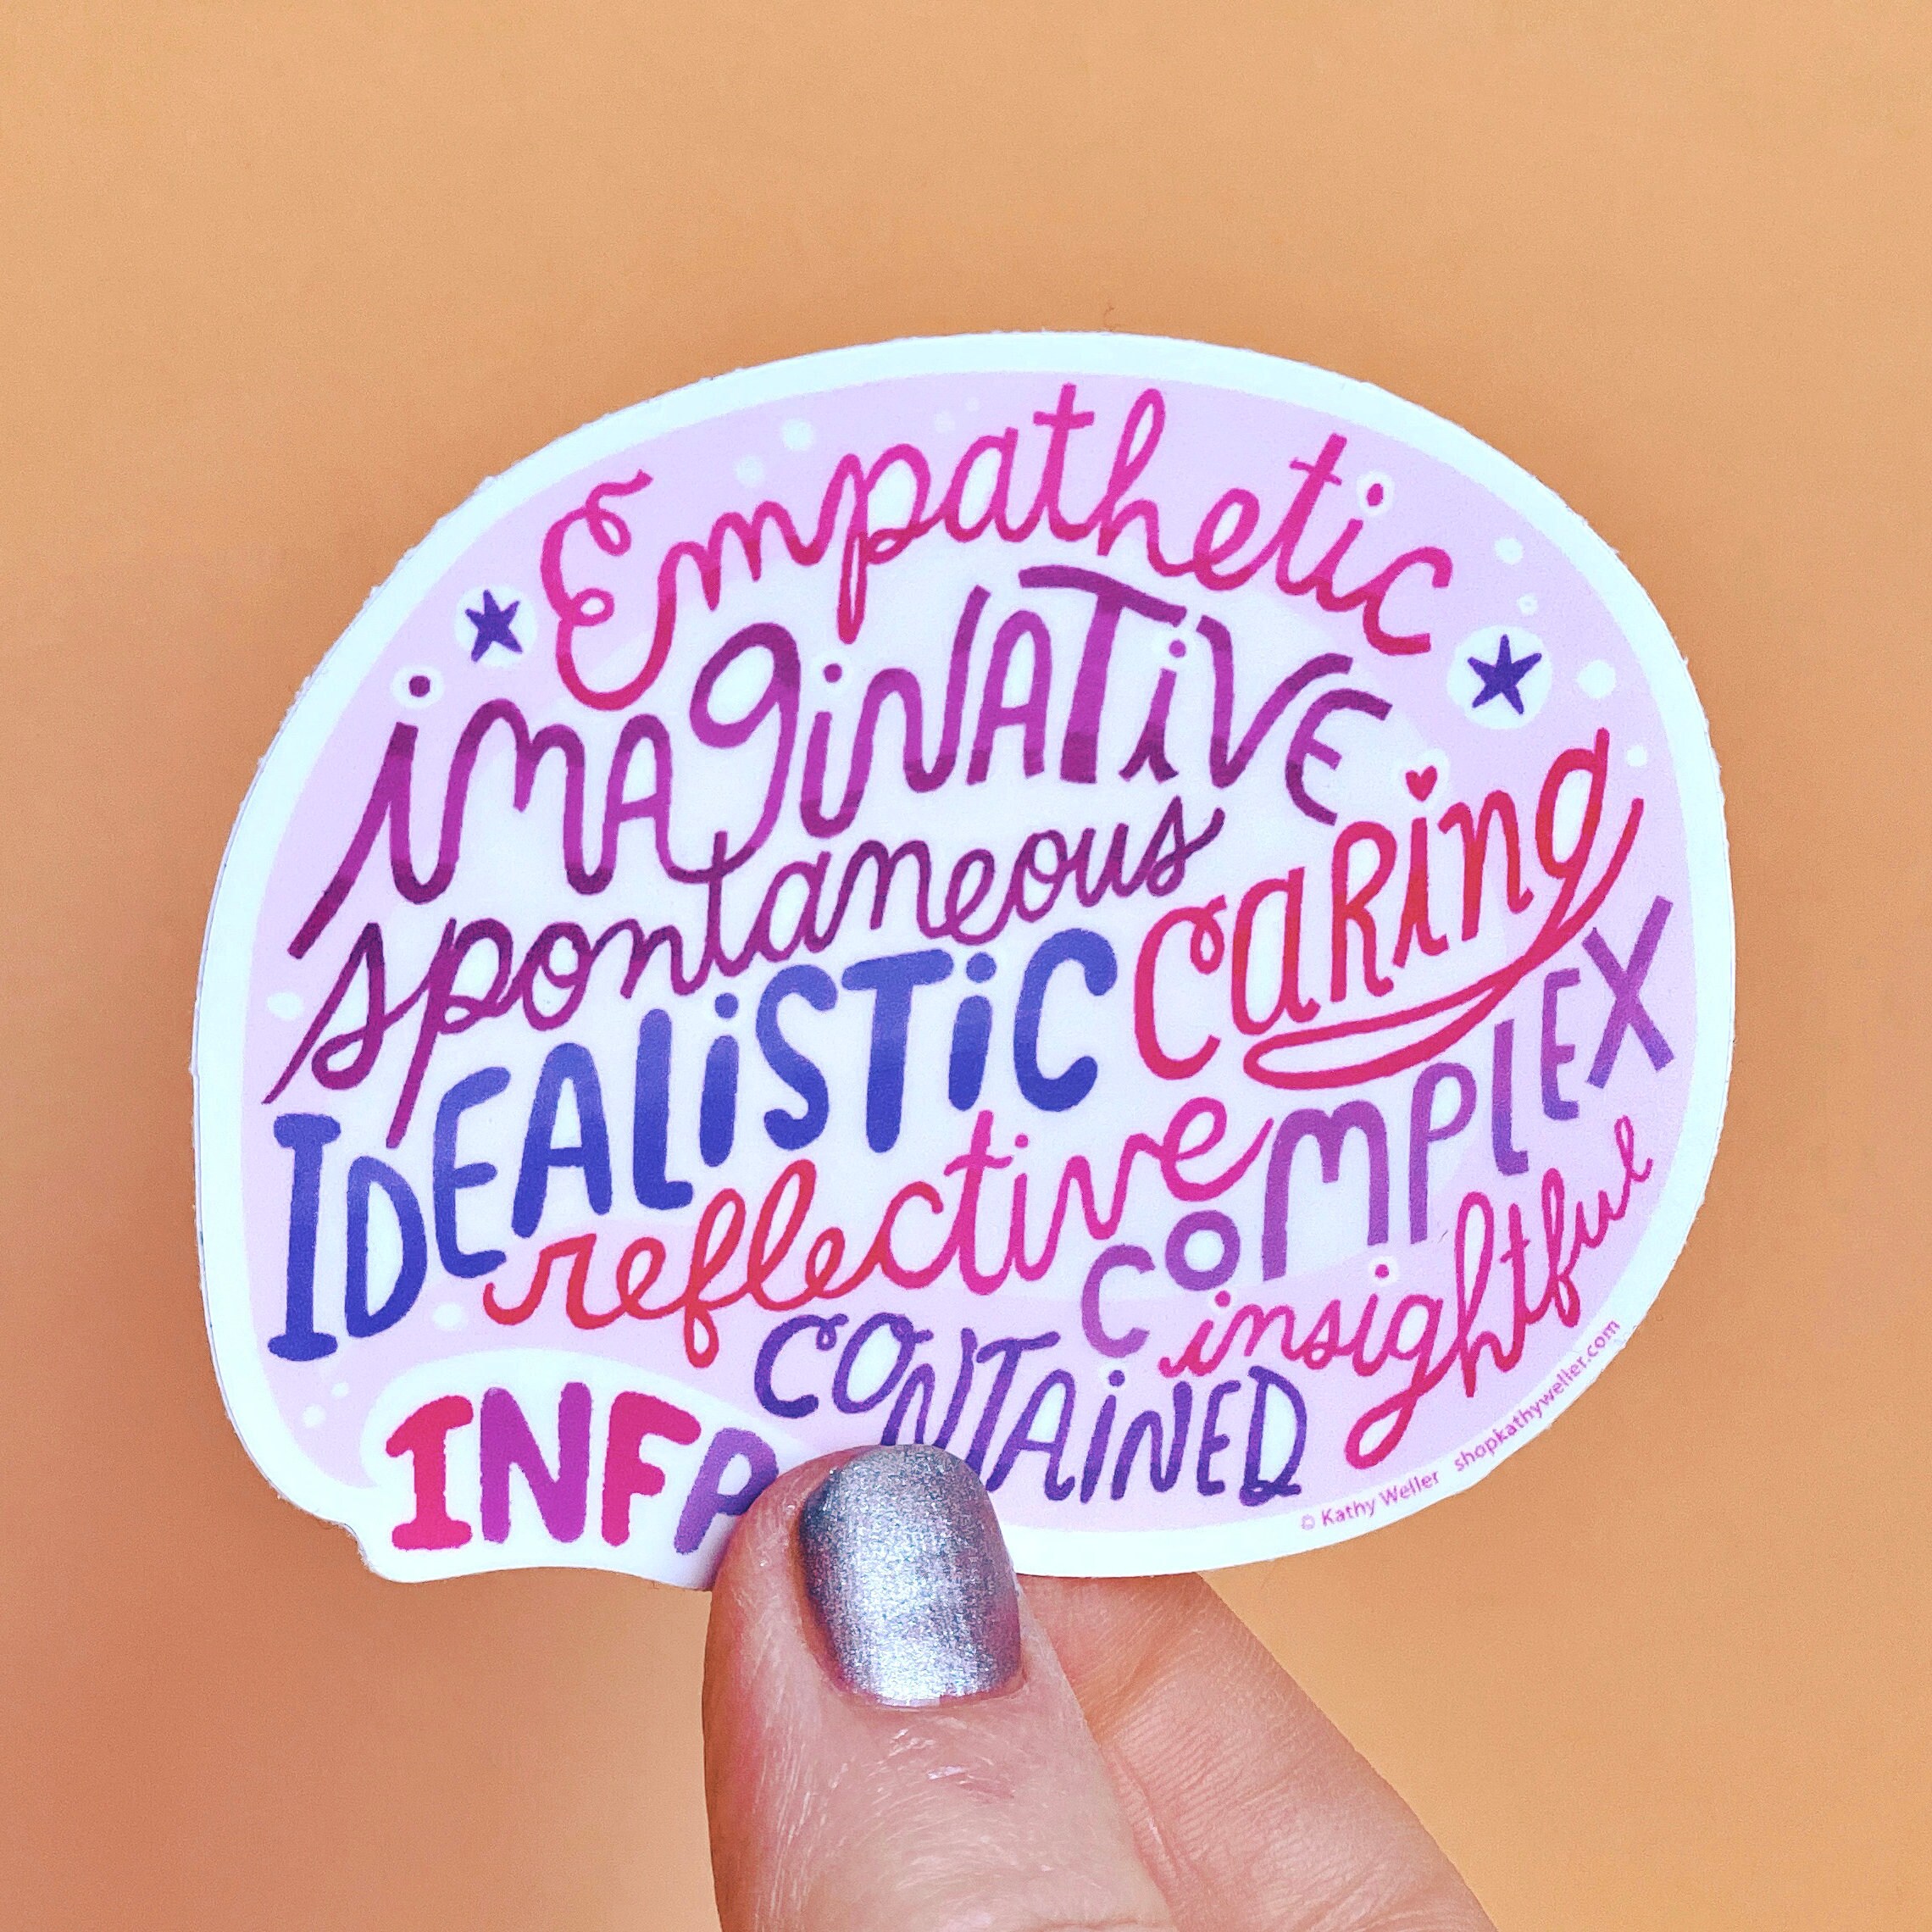 Empathetic
iMAginATiVE
spontaneous
caRing
IDEALiSTiC
COMPLEX
reflective
insightful
CONTAiNED
INFP
© Kathy Weller shopkathyweller.com